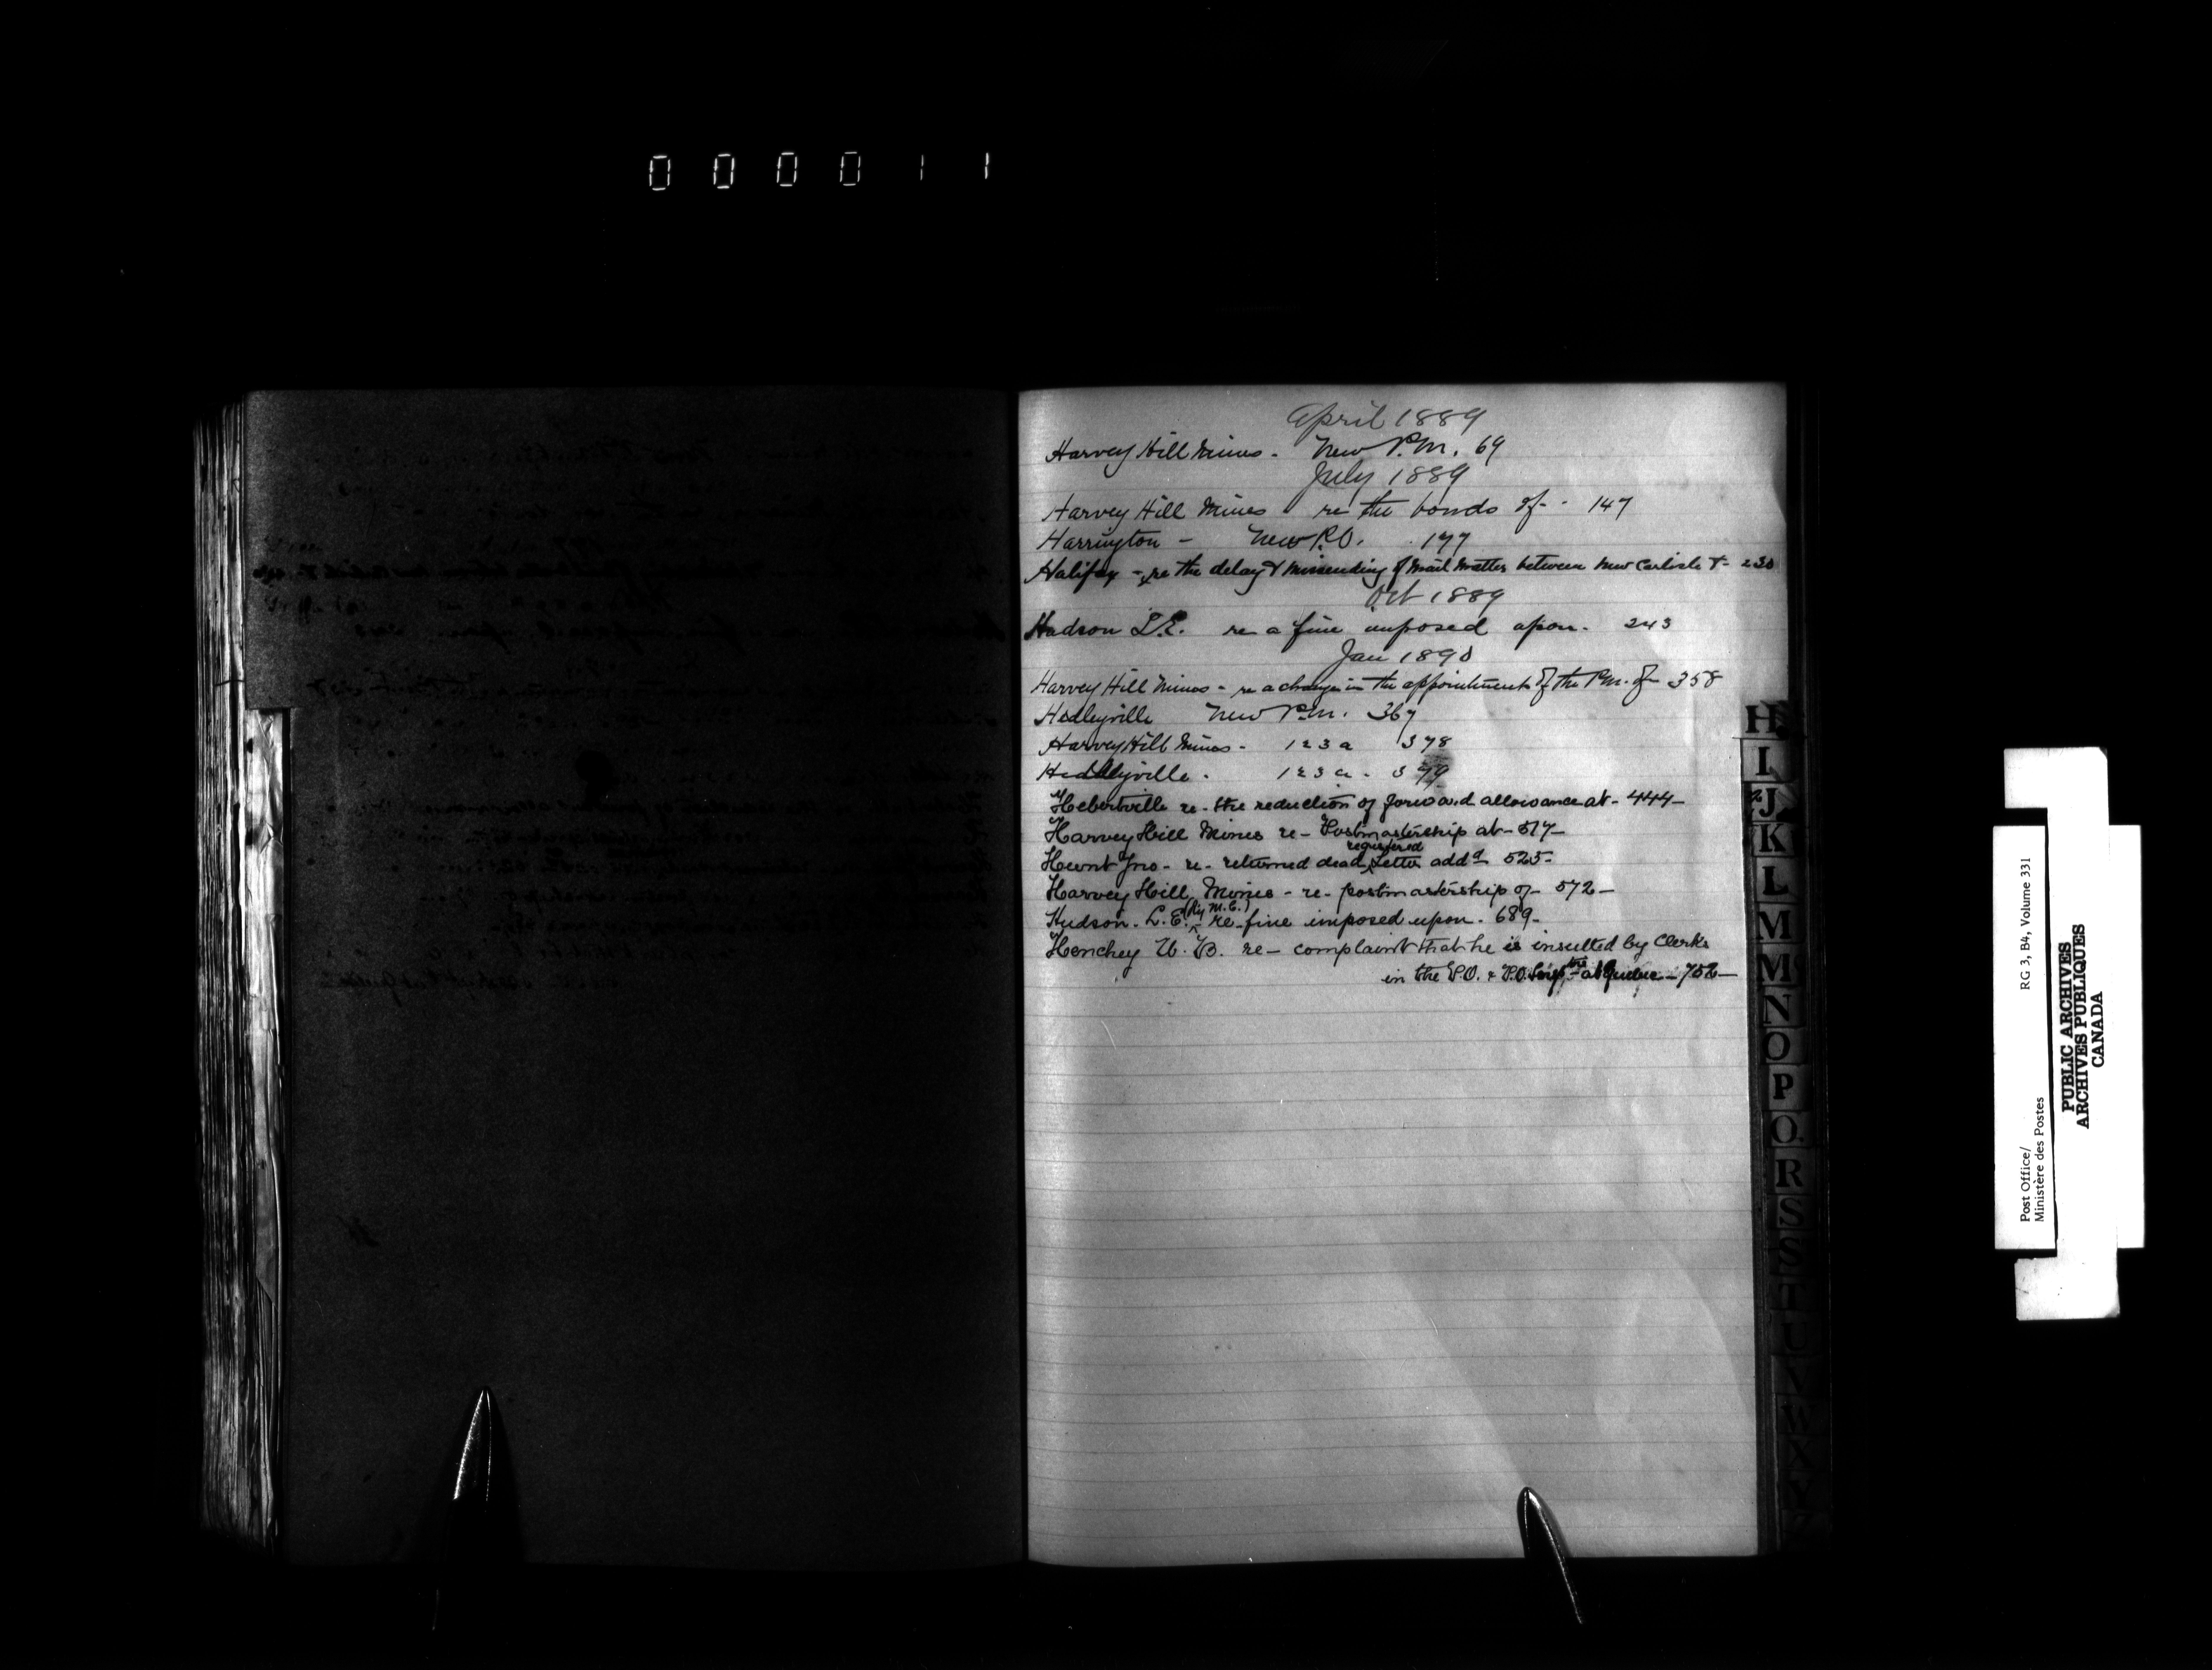 000011
April 1889
Harvey Hill Mines - New P.M. 69
July 1889
Harvey Hill Mines re the bonds of - 147
Harrington - New P.O. 177
Halifax - re the delay & missending of Mail Matter between New Carlisle & - 230
Oct 1889
Hudson L.E. re a fine imposed upon - 243
Jan 1890
Harvey Hill Mines - re a change in the appointment of the P.M. of - 358
Hedleyville New P.M. 367
Harvey Hill Mines - 123a 378
Hedleyville - 123a - 379
Hebertville re - the reduction of forward allowance at - 444 -
Harvey Hill Mines re - Postmastership at - 517 -
Hunt Jno - re - returned dead registered letter addd 525 -
Harvey Hill Mines - re - postmastership of - 572 -
Hudson. L.E. (Ry M.C.) re - fine imposed upon - 689 -
Henchey U. B. re - complaint that he is insulted by Clerks
in the P.O. & P.O. at Quebec - 752 -
H
I
J
K
L
M
Mc
N
O
P
Q
R
S
S
T
U
V
W
X
Y
Z
Post Office/
Ministère des Postes
RG 3, B4, Volume 331
PUBLIC ARCHIVES
ARCHIVES PUBLIQUES
CANADA